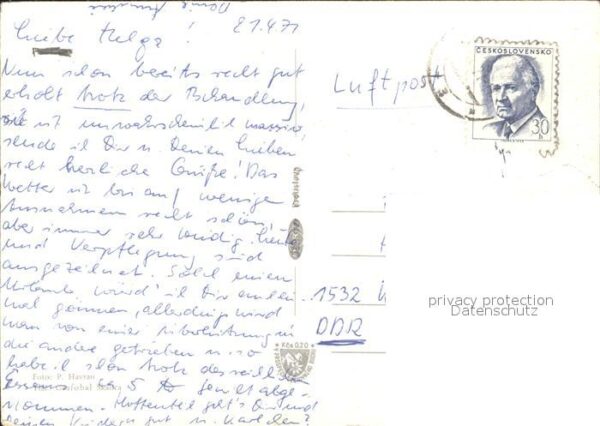 21.4.71
Liebe Helga!
Nun schon bereits recht gut
erholt trotz der Behandlung,
sie ist unwahrscheinlich massiv,
sende ich Dir u. Deinen Lieben
recht herzliche Grüße! Das
Wetter ist bis auf wenige
Ausnahmen recht schön,
aber immer sehr windig.
und Verpflegung sind
ausgezeichnet. Solch einen
Urlaub würd' ich Dir auch
mal gönnen, allerdings wird
man von einer in
die andere getrieben u. so
habe ich schon trotz des
Essens ca 5 abge-
nommen. Hoffentlich geht's Dir und
Deinen Kindern gut u. Karlchen?
Luftpost
ČESKOSLOVENSKO
30 h
1532
DDR
privacy protection
Datenschutz
Kčs 0,20
Foto: P. Havran